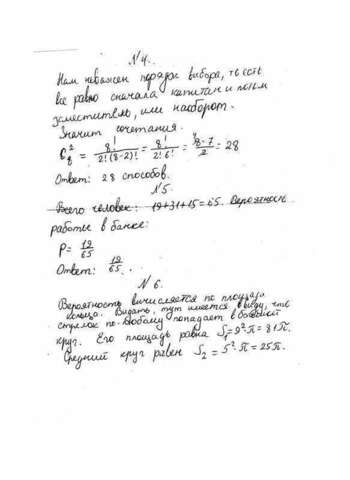 №4.
Нам неважен порядок выбора, то есть
все равно сначала капитан и потом
заместитель, или наоборот.
Значит сочетания.
C₈² = 8!/2!(8-2)! = 8!/2!6! = 8·7/2 = 28
Ответ: 28 способов.
№5.
Всего человек: 19+31+15=65. Вероятность
работы в банке:
P= 19/65
Ответ: 19/65.
№6.
Вероятность вычисляется по площади
кольца. Видать, тут имеется ввиду, что
стрелок по-любому попадает в большой
круг. Его площадь равна S₁=9²·π=81π.
Средний круг равен S₂=5²·π=25π.